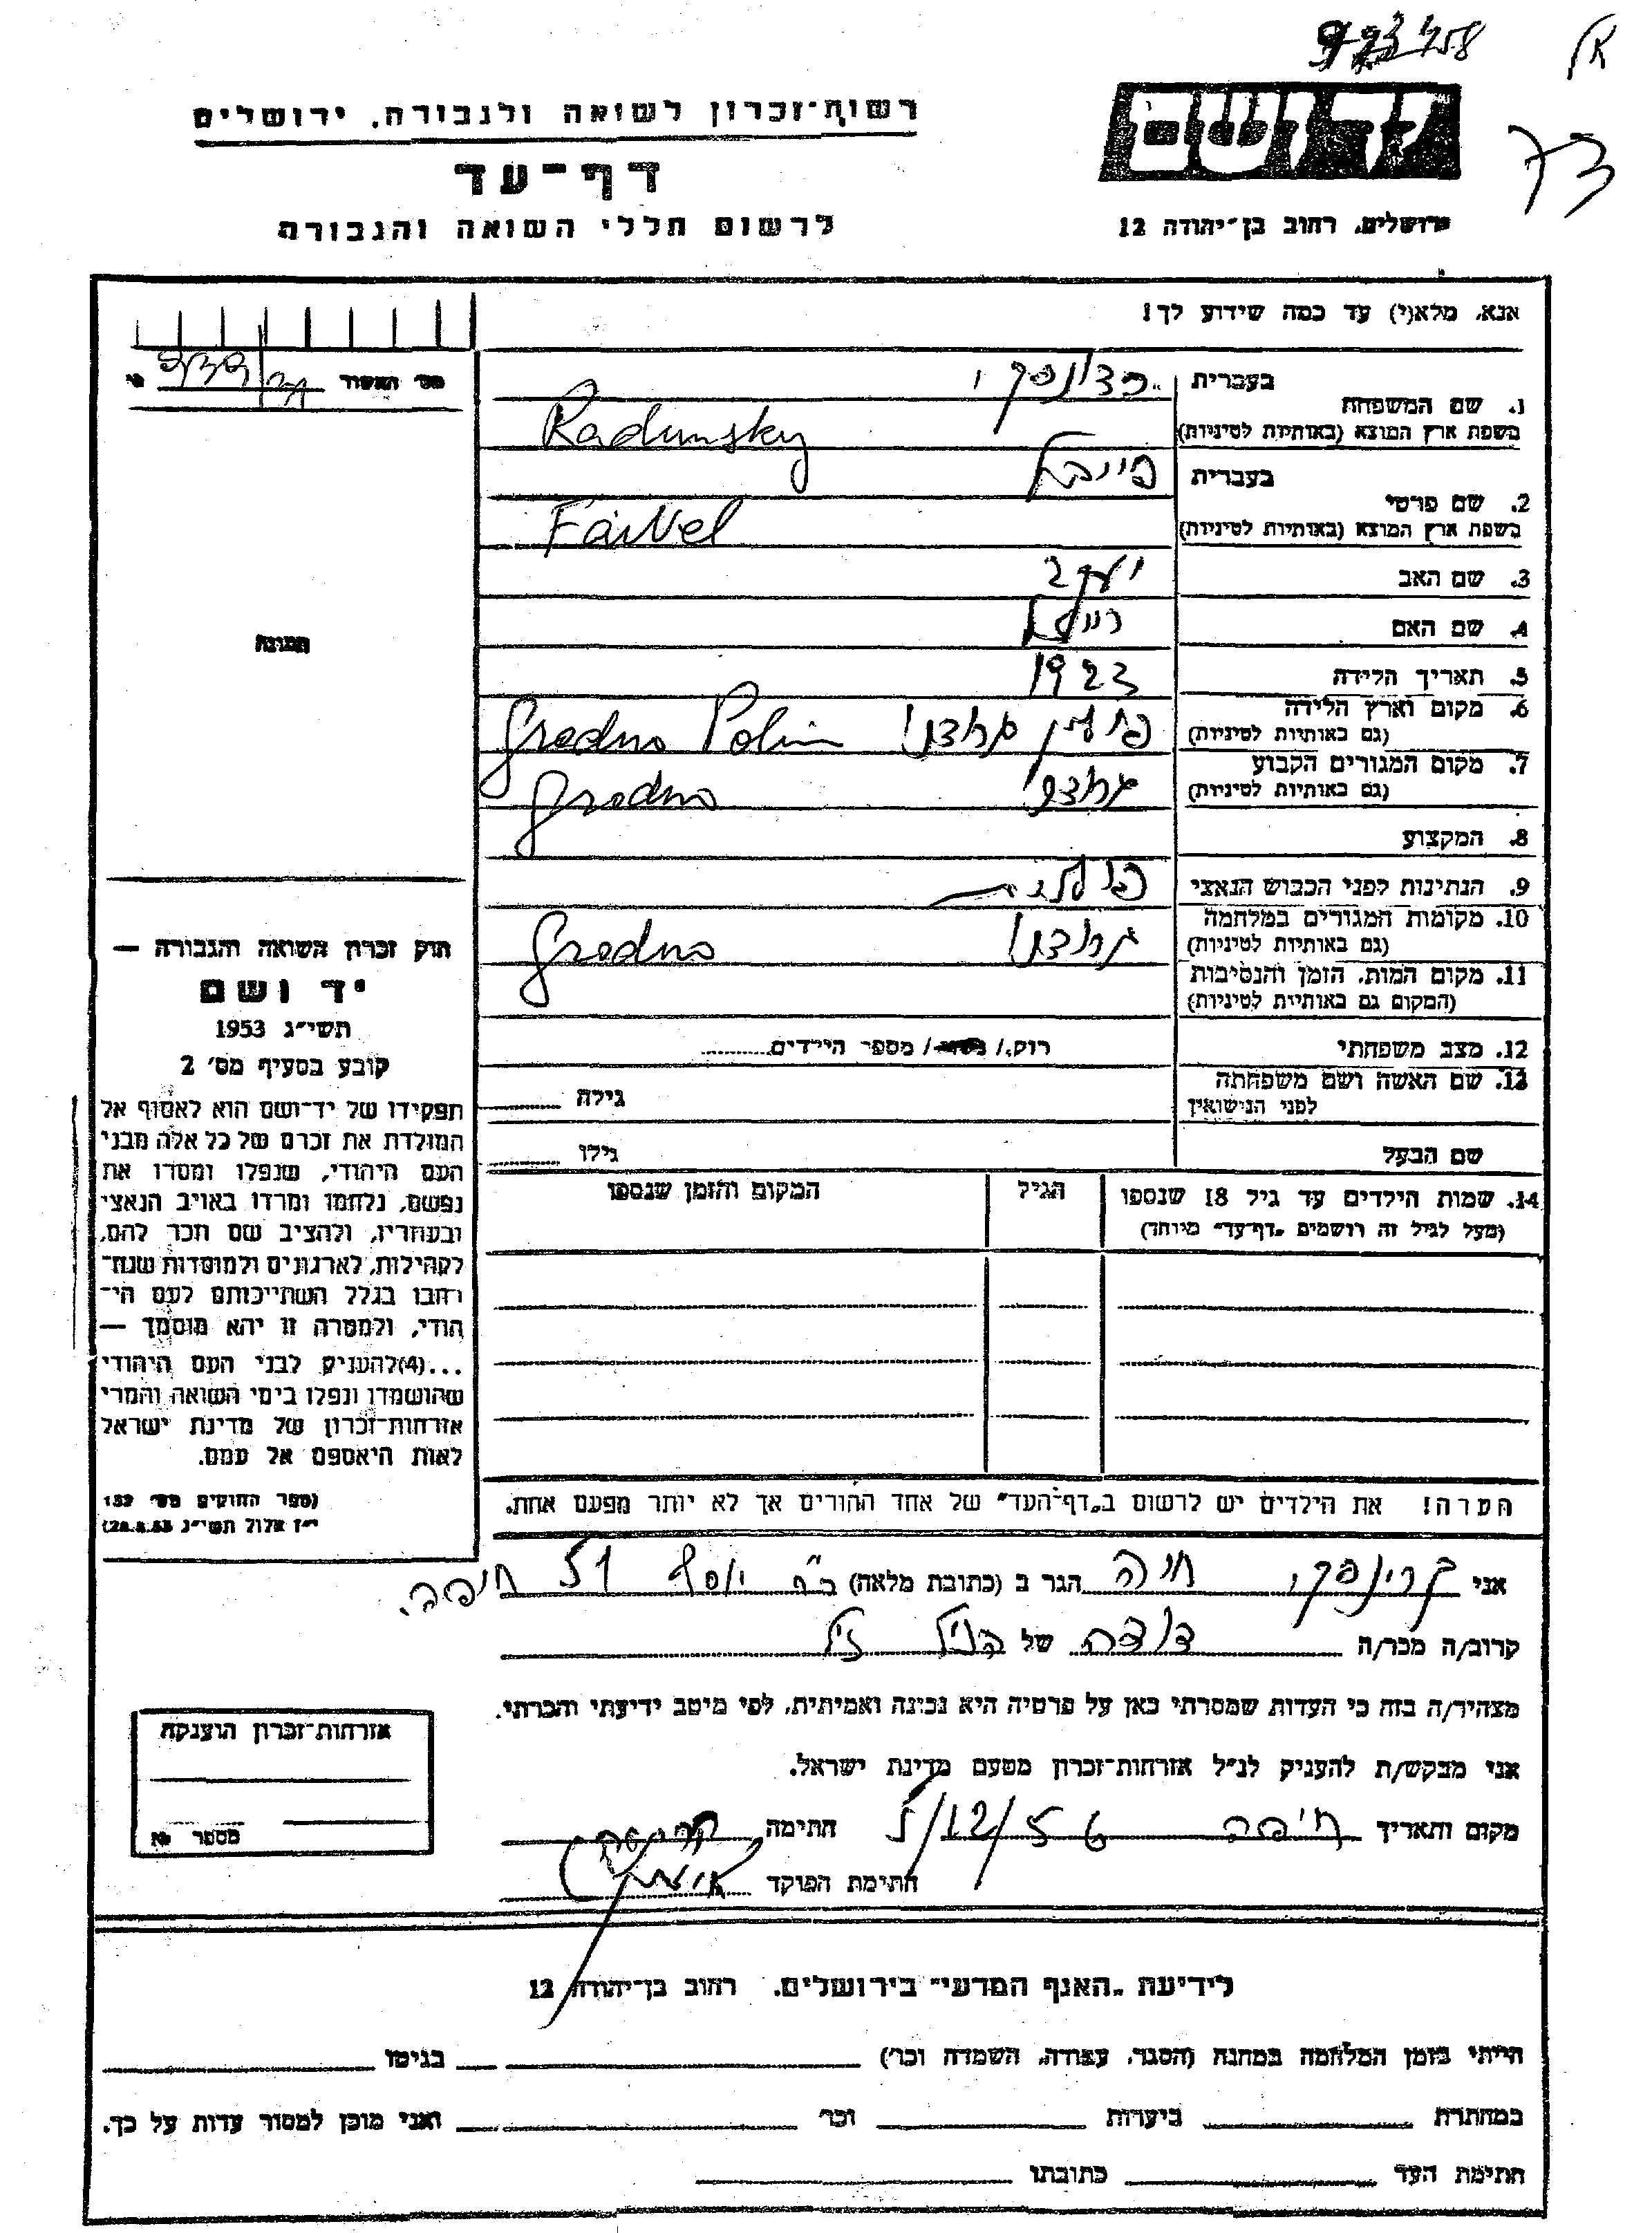 רשות־זכרון לשואה ולגבורה, ירושלים
דף־עד
לרשום חללי השואה והגבורה
ירושלים, רחוב בן־יהודה 12
אנא, מלא(י) עד כמה שידוע לך!
1. שם המשפחה
בעברית רדונסקי
בשפת ארץ המוצא (באותיות לטיניות) Radunsky
2. שם פרטי
בעברית פייבל
בשפת ארץ המוצא (באותיות לטיניות) Faivel
3. שם האב יעקב
4. שם האם
5. תאריך הלידה 1923
6. מקום וארץ הלידה
(גם באותיות לטיניות) פולין גרודנו Grodno Polin
7. מקום המגורים הקבוע
(גם באותיות לטיניות) גרודנו Grodno
8. המקצוע
9. הנתינות לפני הכבוש הנאצי פולנית
10. מקומות המגורים במלחמה
(גם באותיות לטיניות) גרודנו Grodno
11. מקום המות, הזמן והנסיבות
(המקום גם באותיות לטיניות)
12. מצב משפחתי רוק / נשוי / מספר הילדים
13. שם האשה ושם משפחתה
לפני הנישואין גילה
שם הבעל גילו
14. שמות הילדים עד גיל 18 שנספו הגיל המקום והזמן שנספו
(מעל לגיל זה רושמים "דף־עד" מיוחד)
הערה! את הילדים יש לרשום ב"דף־העד" של אחד ההורים אך לא יותר מפעם אחת.
מס׳ האשור
תמונה
חוק זכרון השואה והגבורה —
יד ושם
תשי״ג 1953
קובע בסעיף מס׳ 2
תפקידו של יד־ושם הוא לאסוף אל
המולדת את זכרם של כל אלה מבני
העם היהודי, שנפלו ומסרו את
נפשם, נלחמו ומרדו באויב הנאצי
ובעוזריו, ולהציב שם וזכר להם,
לקהילות, לארגונים ולמוסדות שנח־
רבו בגלל השתייכותם לעם הי־
הודי, ולמטרה זו יהא מוסמך —
...(4)להעניק לבני העם היהודי
שהושמדו ונפלו בימי השואה והמרי
אזרחות־זכרון של מדינת ישראל
לאות היאספם אל עמם.
(ספר החוקים מס׳ 132
י״ז אלול תשי״ג 28.8.53)
אני קרינסקי חיה הגר ב (כתובת מלאה) יוסף 51 חיפה.
קרוב/ה מכר/ה דודה של הנ״ל ז״ל
מצהיר/ה בזה כי העדות שמסרתי כאן על פרטיה היא נכונה ואמיתית, לפי מיטב ידיעתי והכרתי.
אני מבקש/ת להעניק לנ״ל אזרחות־זכרון מטעם מדינת ישראל.
מקום ותאריך חיפה 5/12/56 חתימה
חתימת הפוקד
אזרחות־זכרון הוענקה
מספר
לידיעת "האגף המדעי" בירושלים. רחוב בן־יהודה 12
הייתי בזמן המלחמה במחנה (הסגר, עבודה, השמדה וכו׳) בגיטו
במחתרת ביערות וכו׳ ואני מוכן למסור עדות על כך.
חתימת העד כתובתו